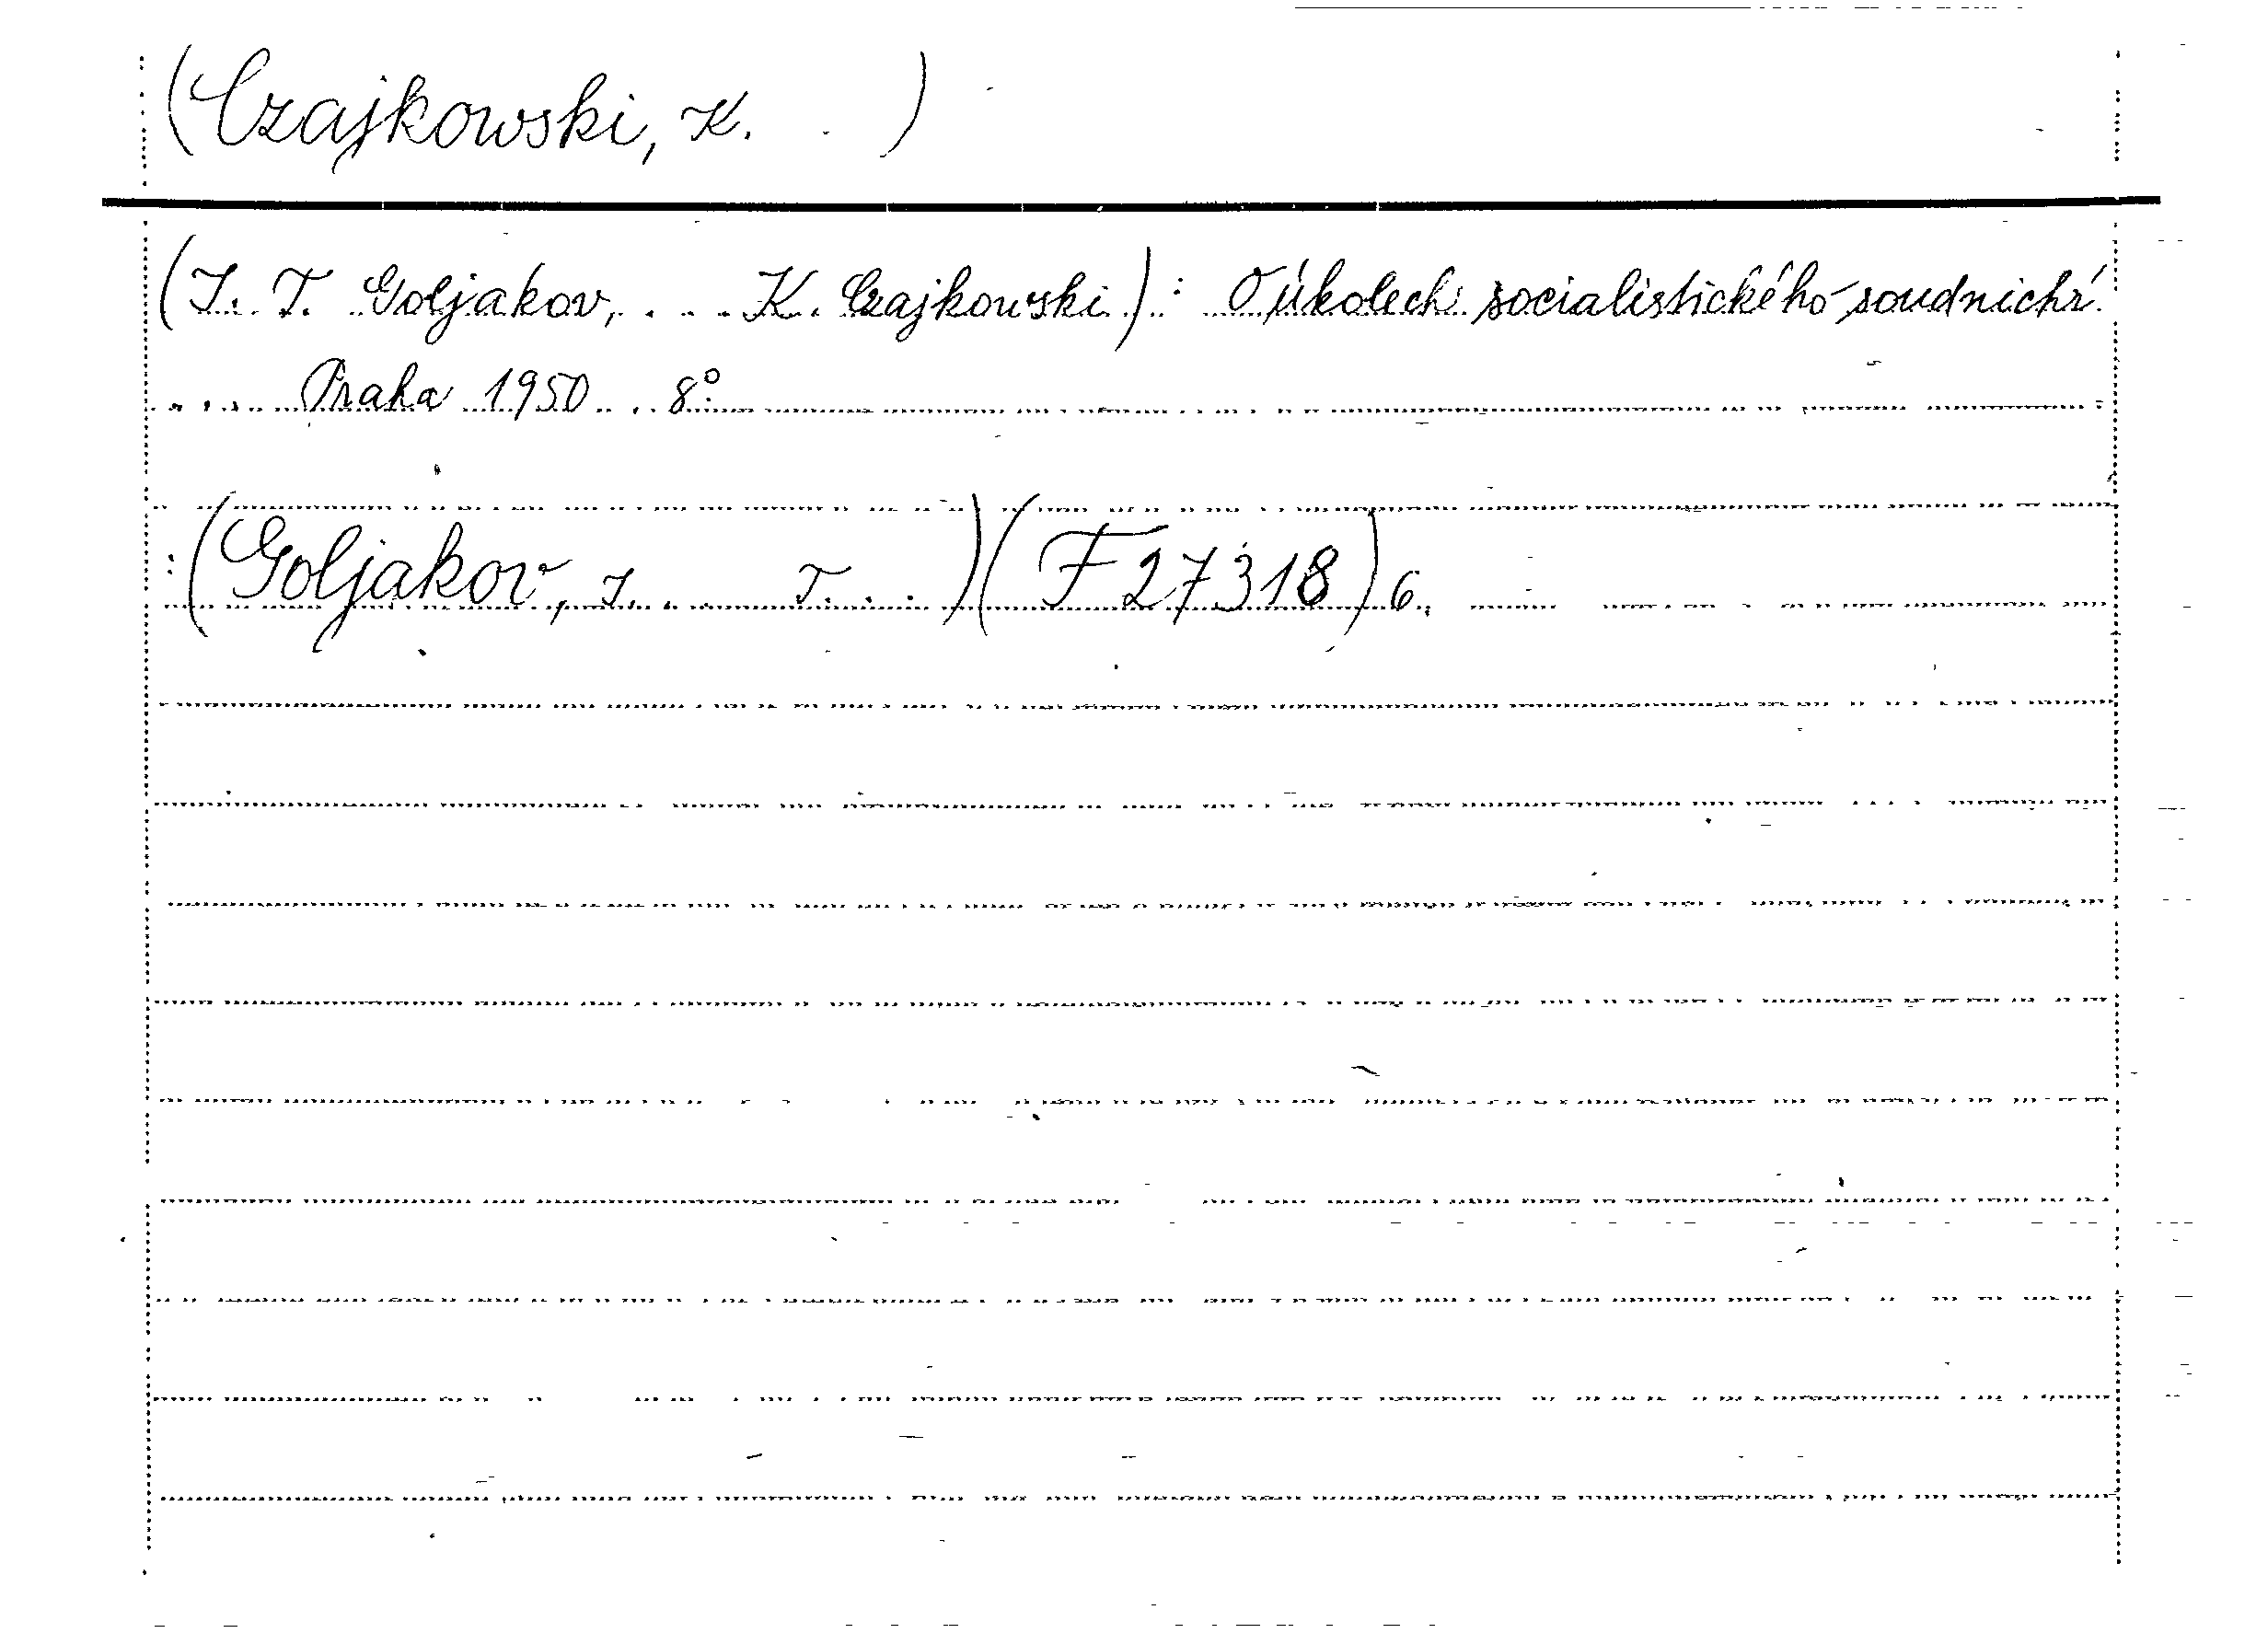 (Czajkowski, K. )
(I. T. Goljakov, . . . K. Czajkowski): O úkolech socialistického soudnictví.
.... Praha 1950 . . 8°.
:(Goljakov, I. . . T. . . )(F 27318) 6.